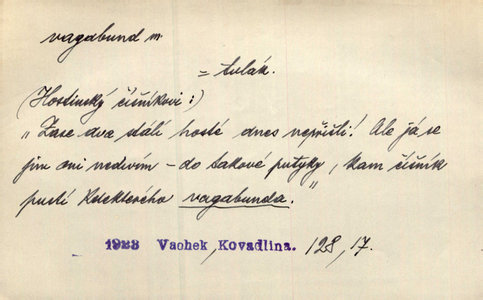 vagabund m.
= tulák.
(Hostinský číšníkovi:)
„Zase dva stálí hosté dnes nepřišli! Ale já se
jim ani nedivím – do takové putyky, kam číšník
pustí kdekterého vagabunda.“
1923 Vachek, Kovadlina. 128, 17.